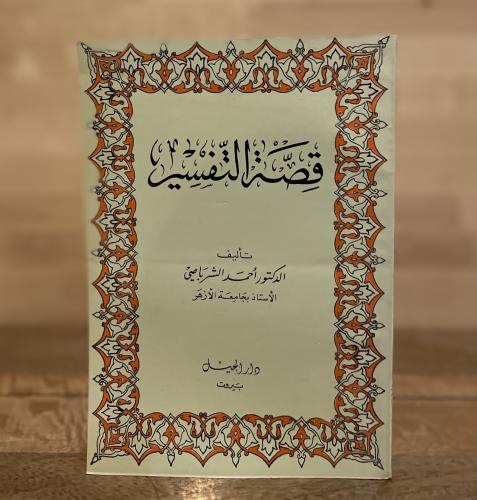 قصَّة التَّفسير
تأليف
الدكتور أحمد الشرباصي
الأستاذ بجامعة الأزهر
دار الجيل
بيروت